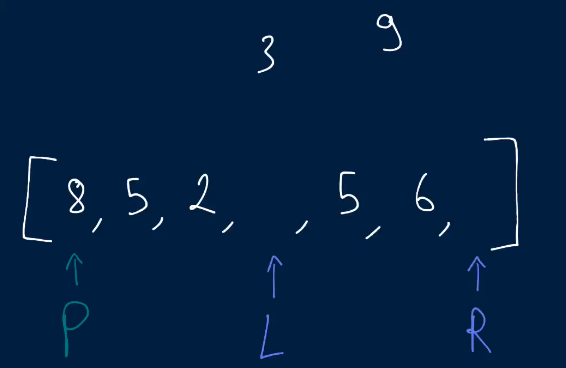 3 9
[8, 5, 2, , 5, 6, ]
P L R